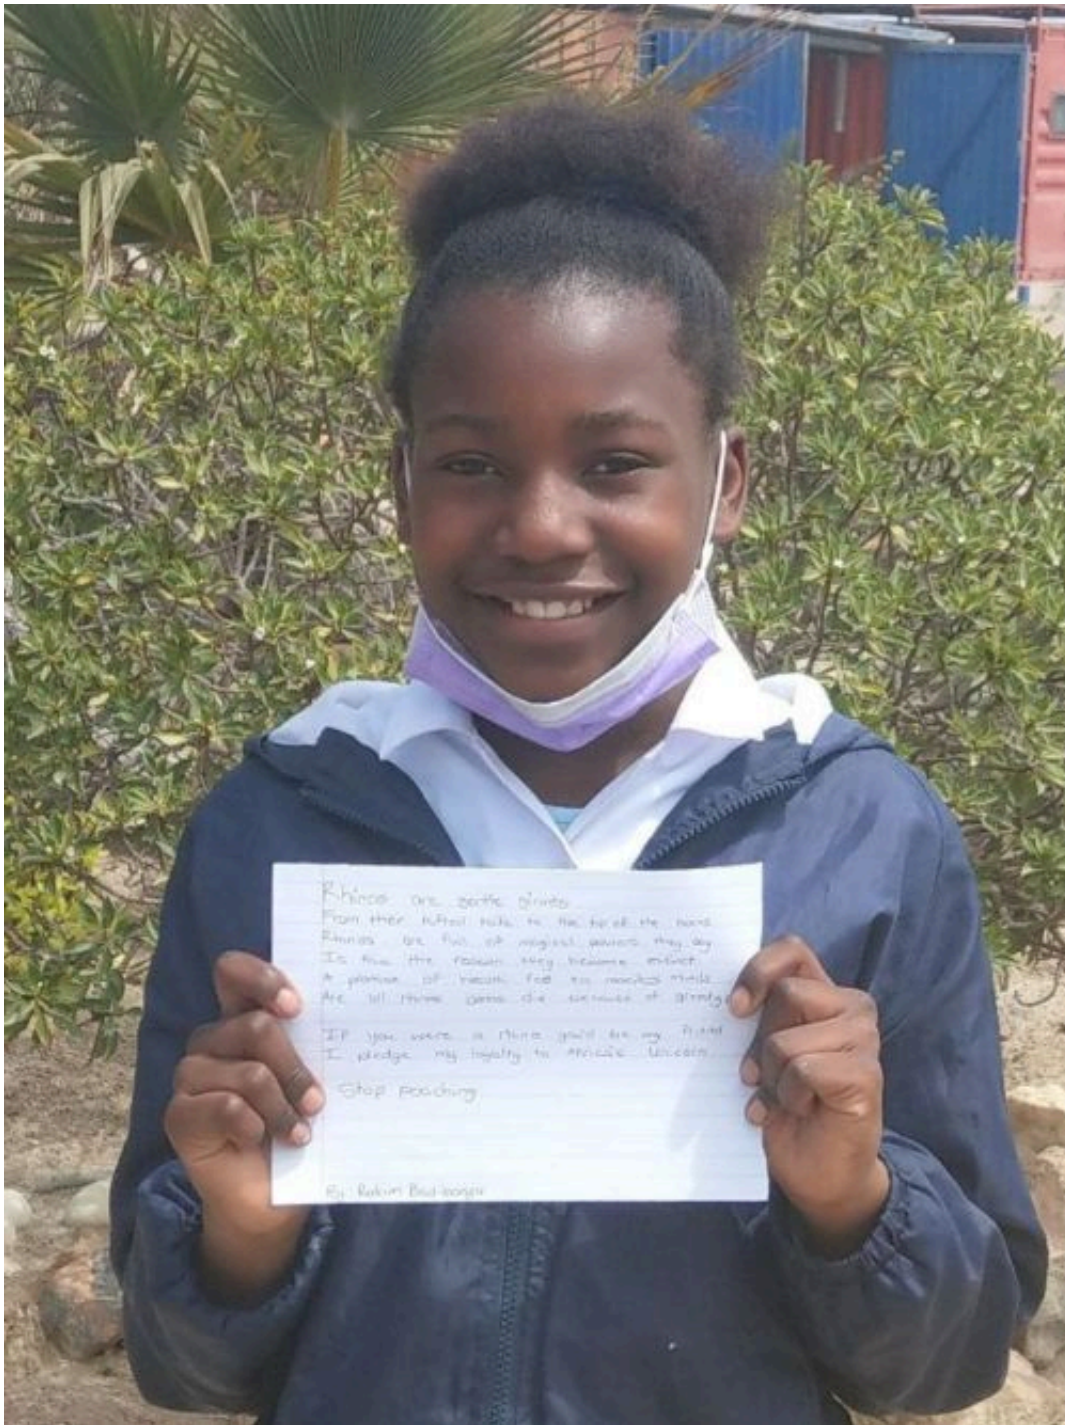 Rhinos are gentle giants
From their tufted tails to the tip of the horns
Rhinos are full of magical powers they say
Is this the reason they become extinct
A promise of health for
Are all rhinos gonna die because of greedy
If you were a rhino you'd be my friend
I pledge my loyalty to Africa's Unicorn
Stop poaching
By: